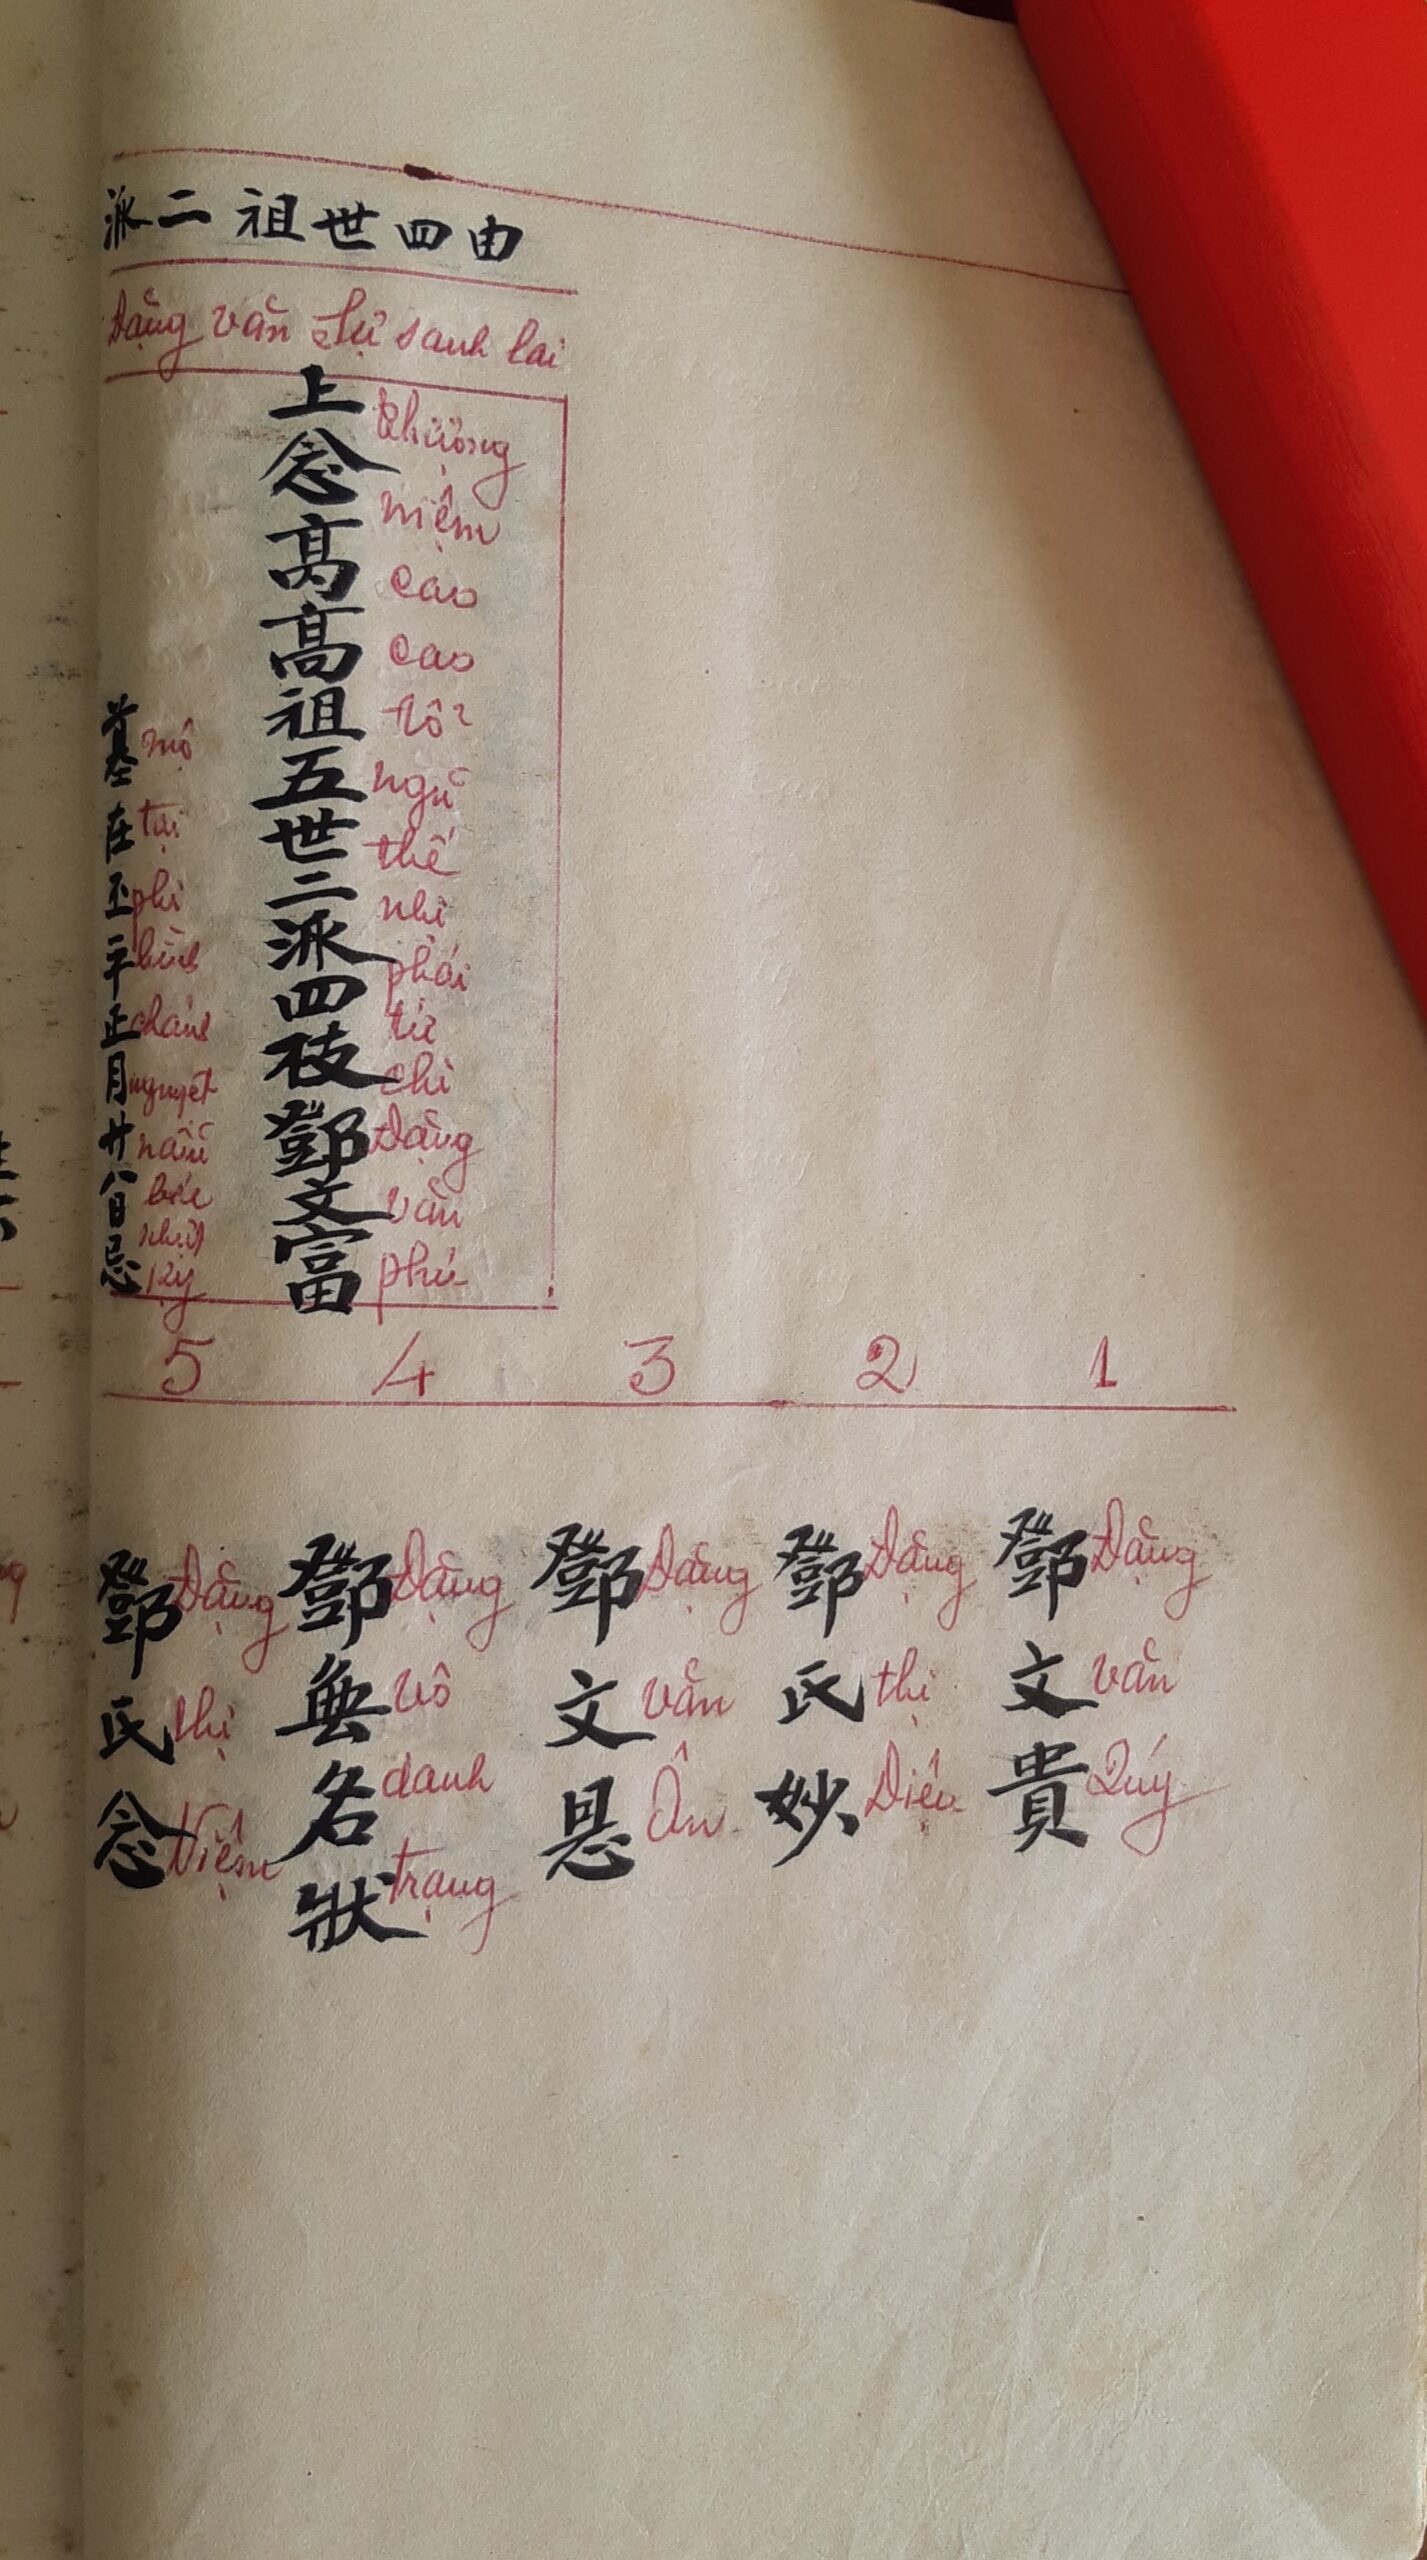 由四世祖二派
Đặng văn Tự sanh lai
上念高高祖五世二派四枝鄧文富
thượng niệm cao cao tổ ngũ thế nhị phái tứ chi Đặng văn phú
墓在丕平正月廿八日忌
mộ tại phi bình chánh nguyệt nhập bát nhựt kỵ
1
2
3
4
5
鄧文貴
Đặng văn Quý
鄧氏妙
Đặng thị Diệu
鄧文恩
Đặng văn Ân
鄧無名狀
Đặng vô danh trạng
鄧氏念
Đặng thị Niệm